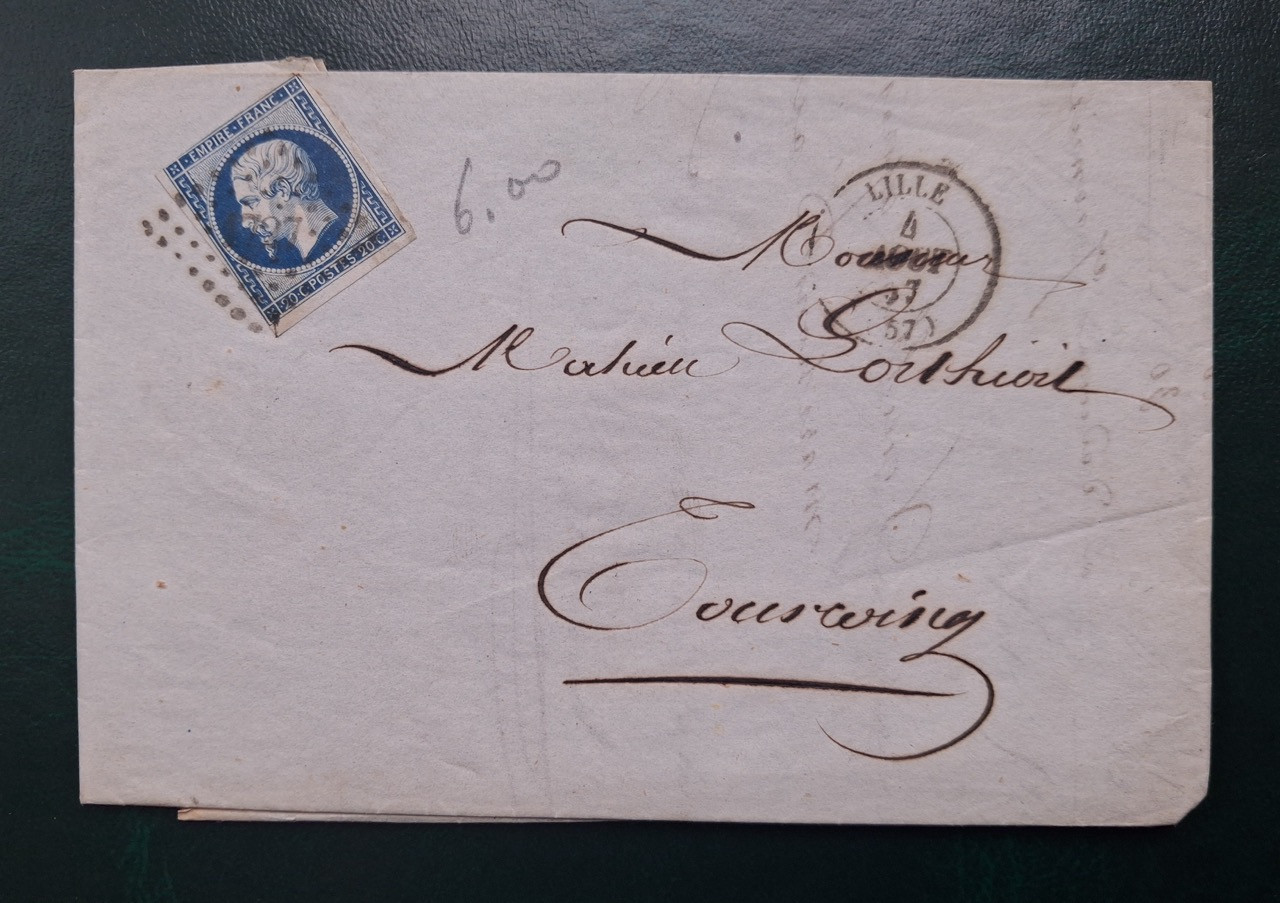 EMPIRE · FRANC ·
1727
· 20 · C · POSTES · 20 · C ·
6.00
LILLE
4
AOUT
57
(57)
Monsieur
Mahieu Lorthioit
Tourcoing